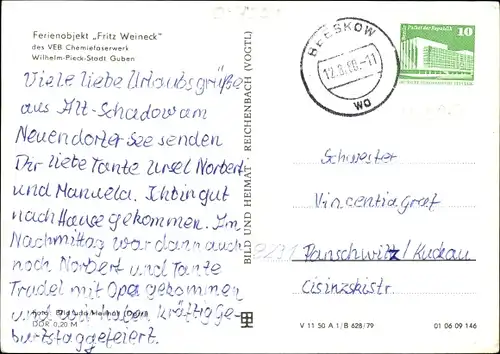 Ferienobjekt „Fritz Weineck"
des VEB Chemiefaserwerk
Wilhelm-Pieck-Stadt Guben
Viele liebe Urlaubsgrüße
aus Alt-Schadow am
Neuendorfer See senden
Dir liebe Tante Ursel Norbert
und Manuela. Ich bin gut
nach Hause gekommen. Im
Nachmittag war dann auch
noch Norbert und Tante
Trudel mit Opa gekommen
und wir haben kräftig Ge-
burtstag gefeiert.
Foto: Bild und Heimat
DDR 0,20 M
BILD UND HEIMAT REICHENBACH (VOGTL)
BEESKOW
12.8.80.-11
wo
10
Schwester
Vincentia Graf
8291
Panschwitz/Kuckau
Cisinskistr.
V 11 50 A 1/B 628/79
01 06 09 146